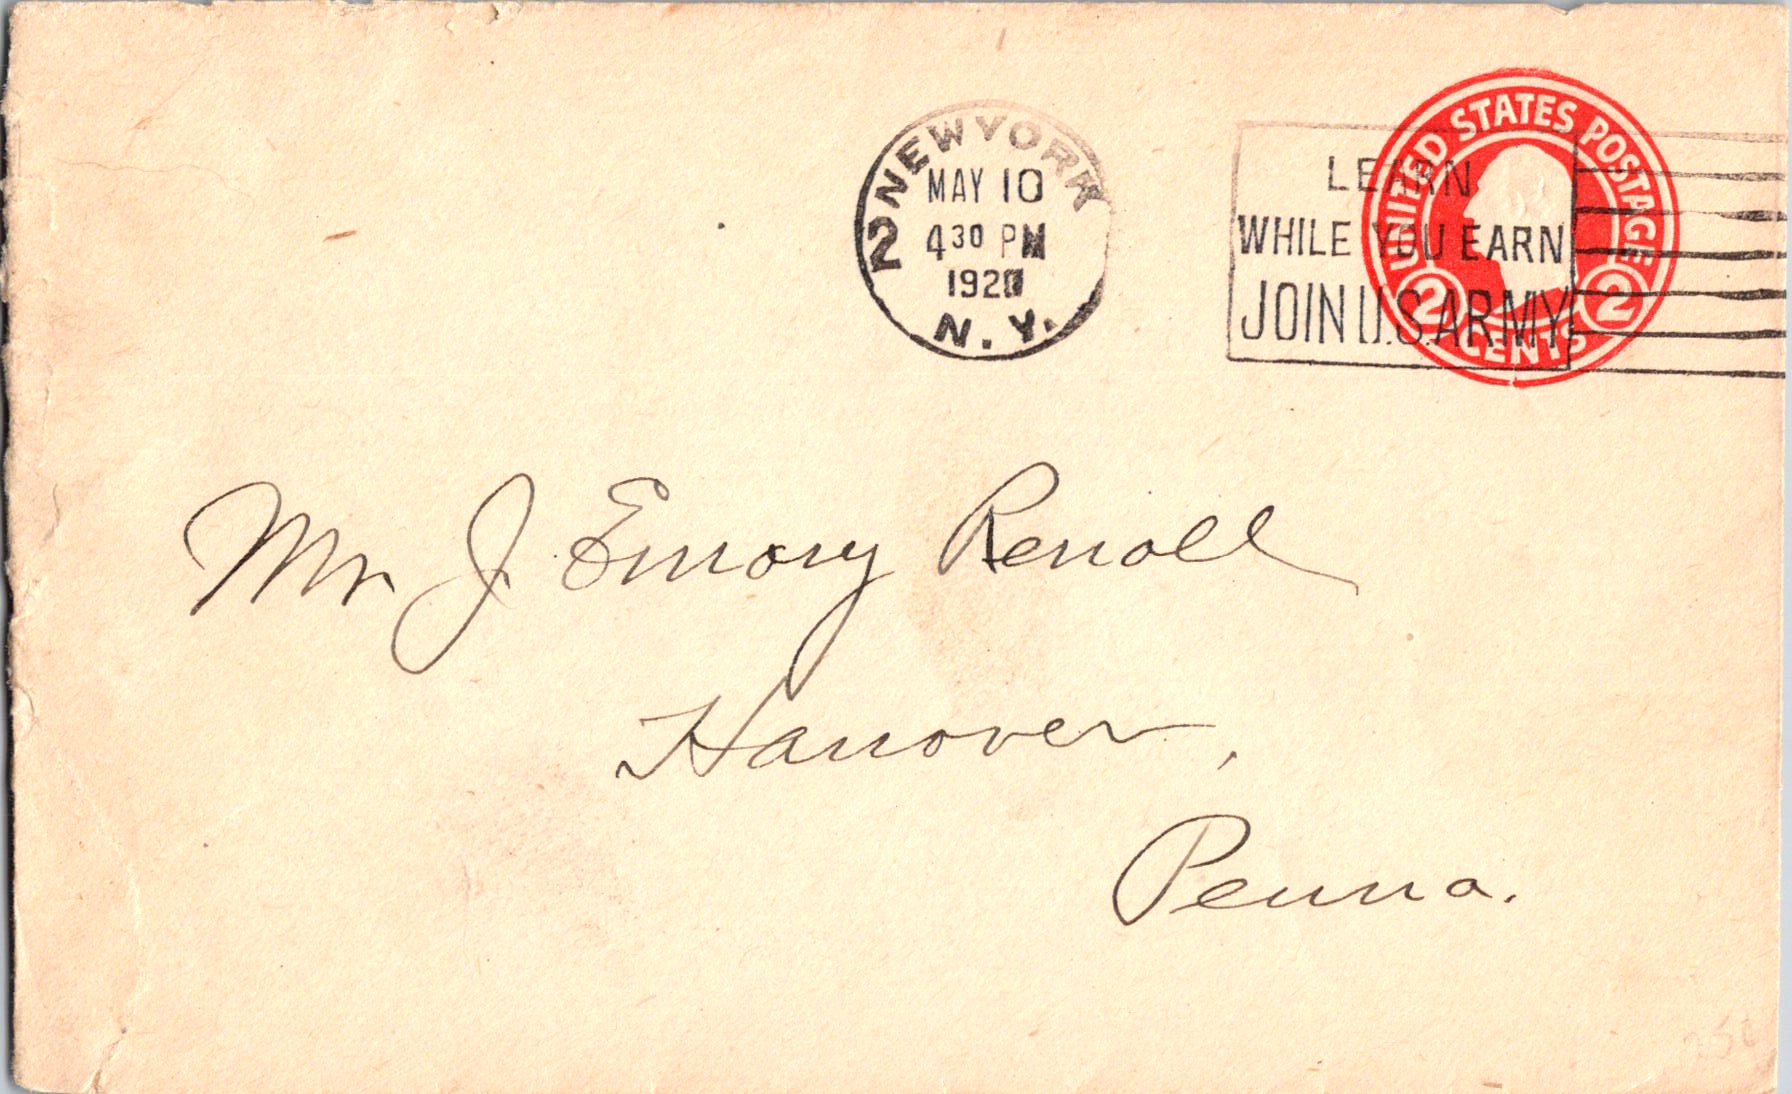 NEW YORK
2
MAY 10
4 30 PM
N. Y.
LEARN
WHILE YOU EARN
JOIN U.S. ARMY
UNITED STATES POSTAGE
2 CENTS 2
Mr J. Emory Renoll
Hanover,
Penna.